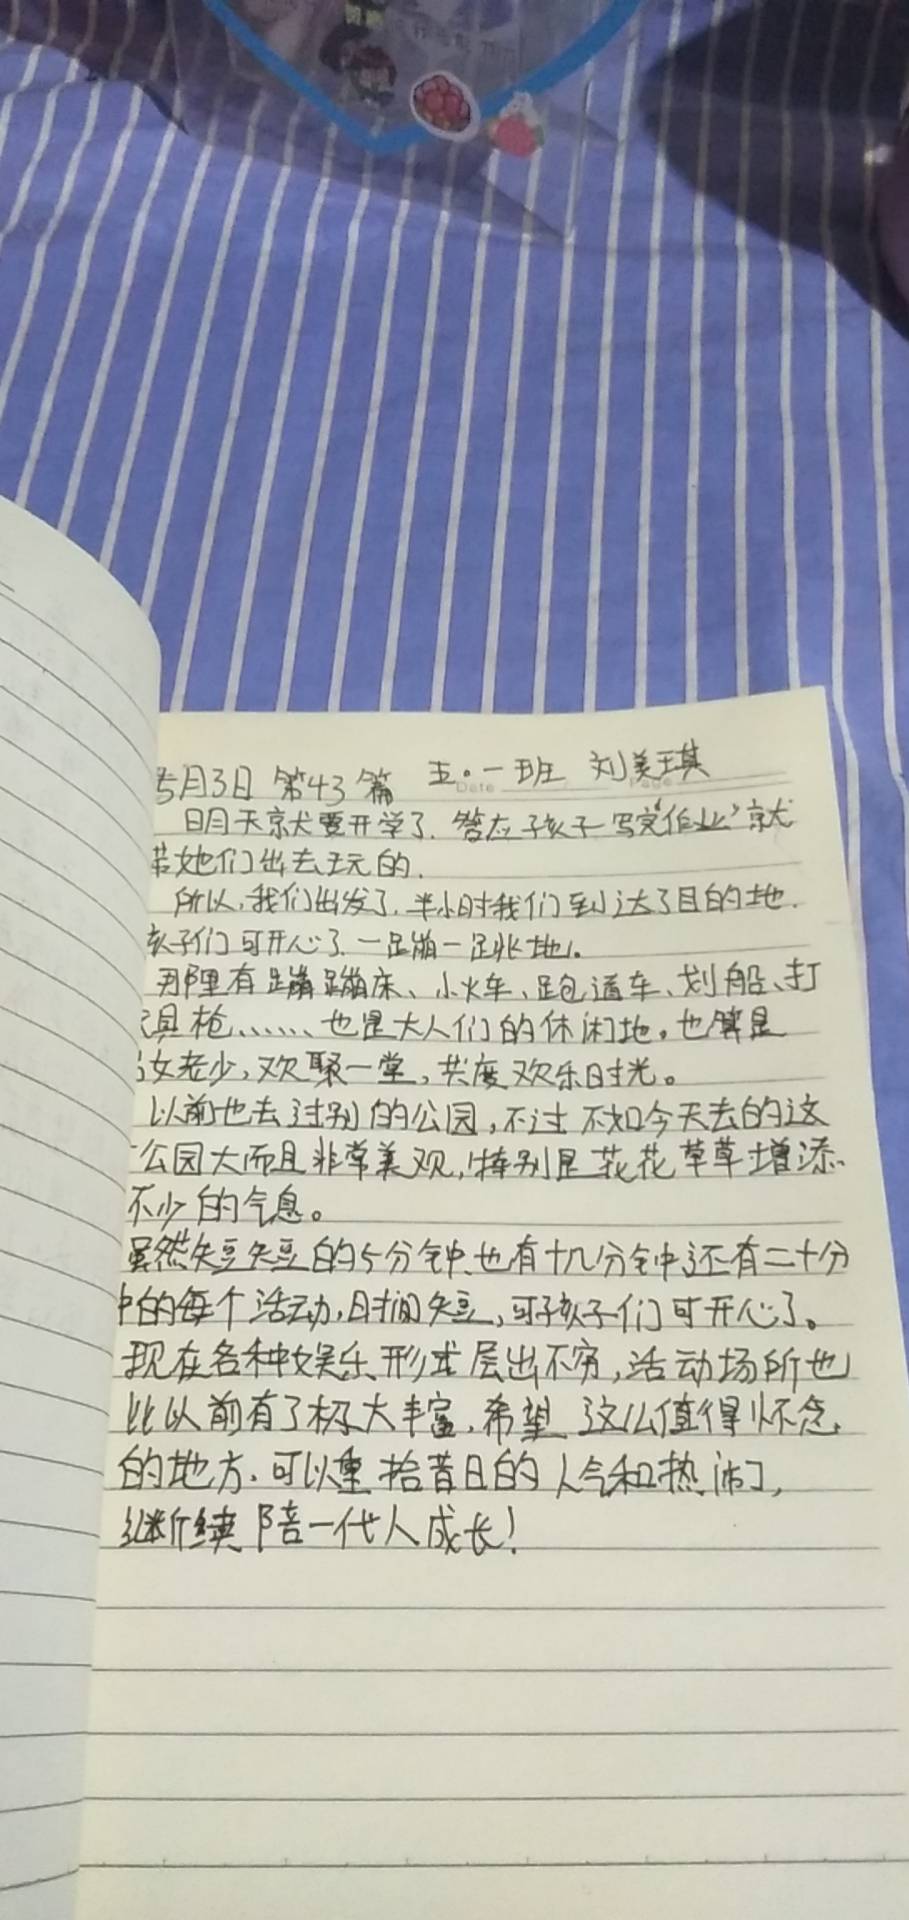 5月3日 第43篇 五。一班 刘美琪
Date Page
明天就要开学了.答应孩子“写完作业”就
带她们出去玩的.
所以,我们出发了.半小时我们到达了目的地.
孩子们可开心了.一蹦一跳地.
那里有蹦蹦床、小火车、跑道车、划船、打
玩具枪……也是大人们的休闲地。也算是
男女老少,欢聚一堂,共度欢乐时光。
以前也去过别的公园,不过不如今天去的这
公园大而且非常美观,特别是花花草草增添
不少的气息。
虽然短短的5分钟、也有十几分钟还有二十分
钟的每个活动,时间短,可孩子们可开心了。
现在各种娱乐形式层出不穷,活动场所也
比以前有了极大丰富.希望这么值得怀念
的地方.可以重拾昔日的人气和热闹,
继续陪一代人成长!